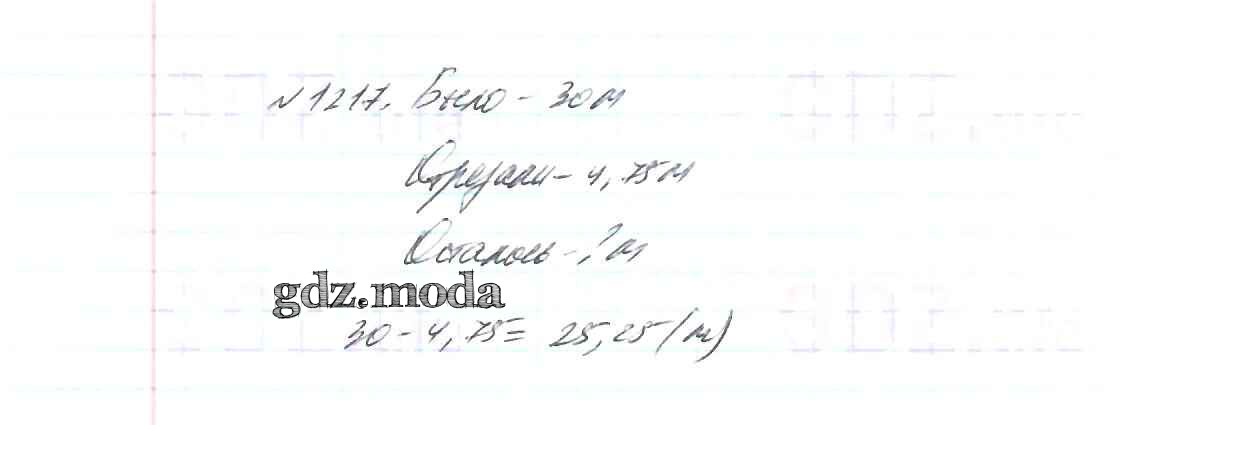 №1217. Было - 30 м
Отрезали - 4,75 м
Осталось - ? м
gdz.moda
30 - 4,75 = 25,25 (м)